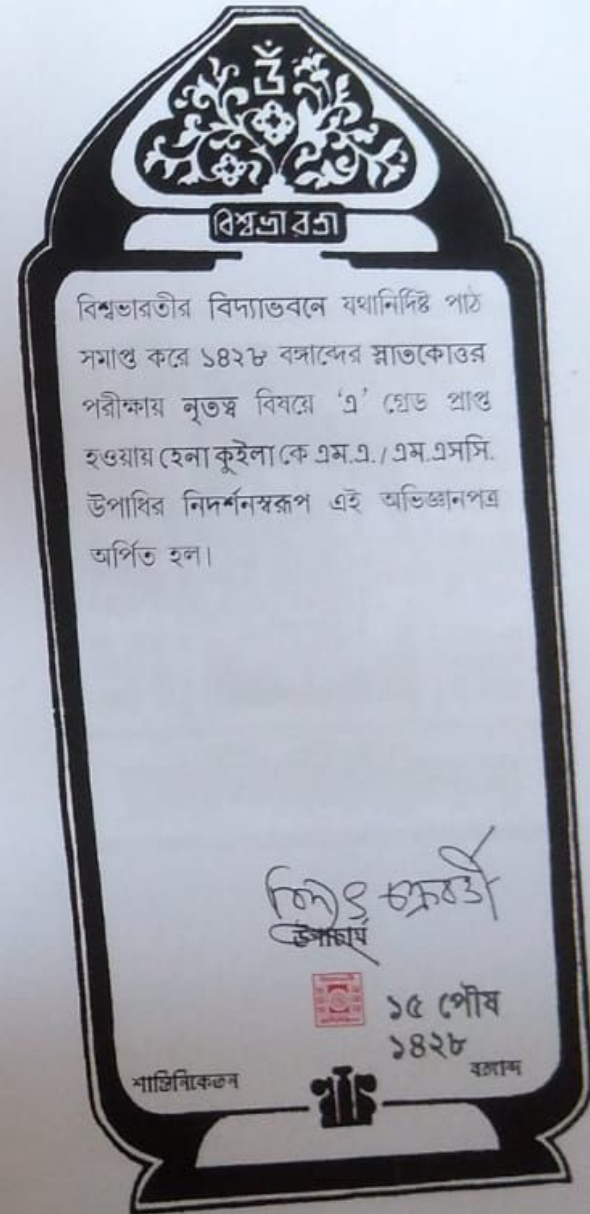 ওঁ
বিশ্বভারতী
বিশ্বভারতীর বিদ্যাভবনে যথানির্দিষ্ট পাঠ
সমাপ্ত করে ১৪২৮ বঙ্গাব্দের স্নাতকোত্তর
পরীক্ষায় নৃতত্ত্ব বিষয়ে ‘এ’ গ্রেড প্রাপ্ত
হওয়ায় হেনা কুইলা কে এম.এ./এম.এসসি.
উপাধির নিদর্শনস্বরূপ এই অভিজ্ঞানপত্র
অর্পিত হল।
বিদ্যুৎ চক্রবর্তী
উপাচার্য
১৫ পৌষ
১৪২৮
বঙ্গাব্দ
শান্তিনিকেতন